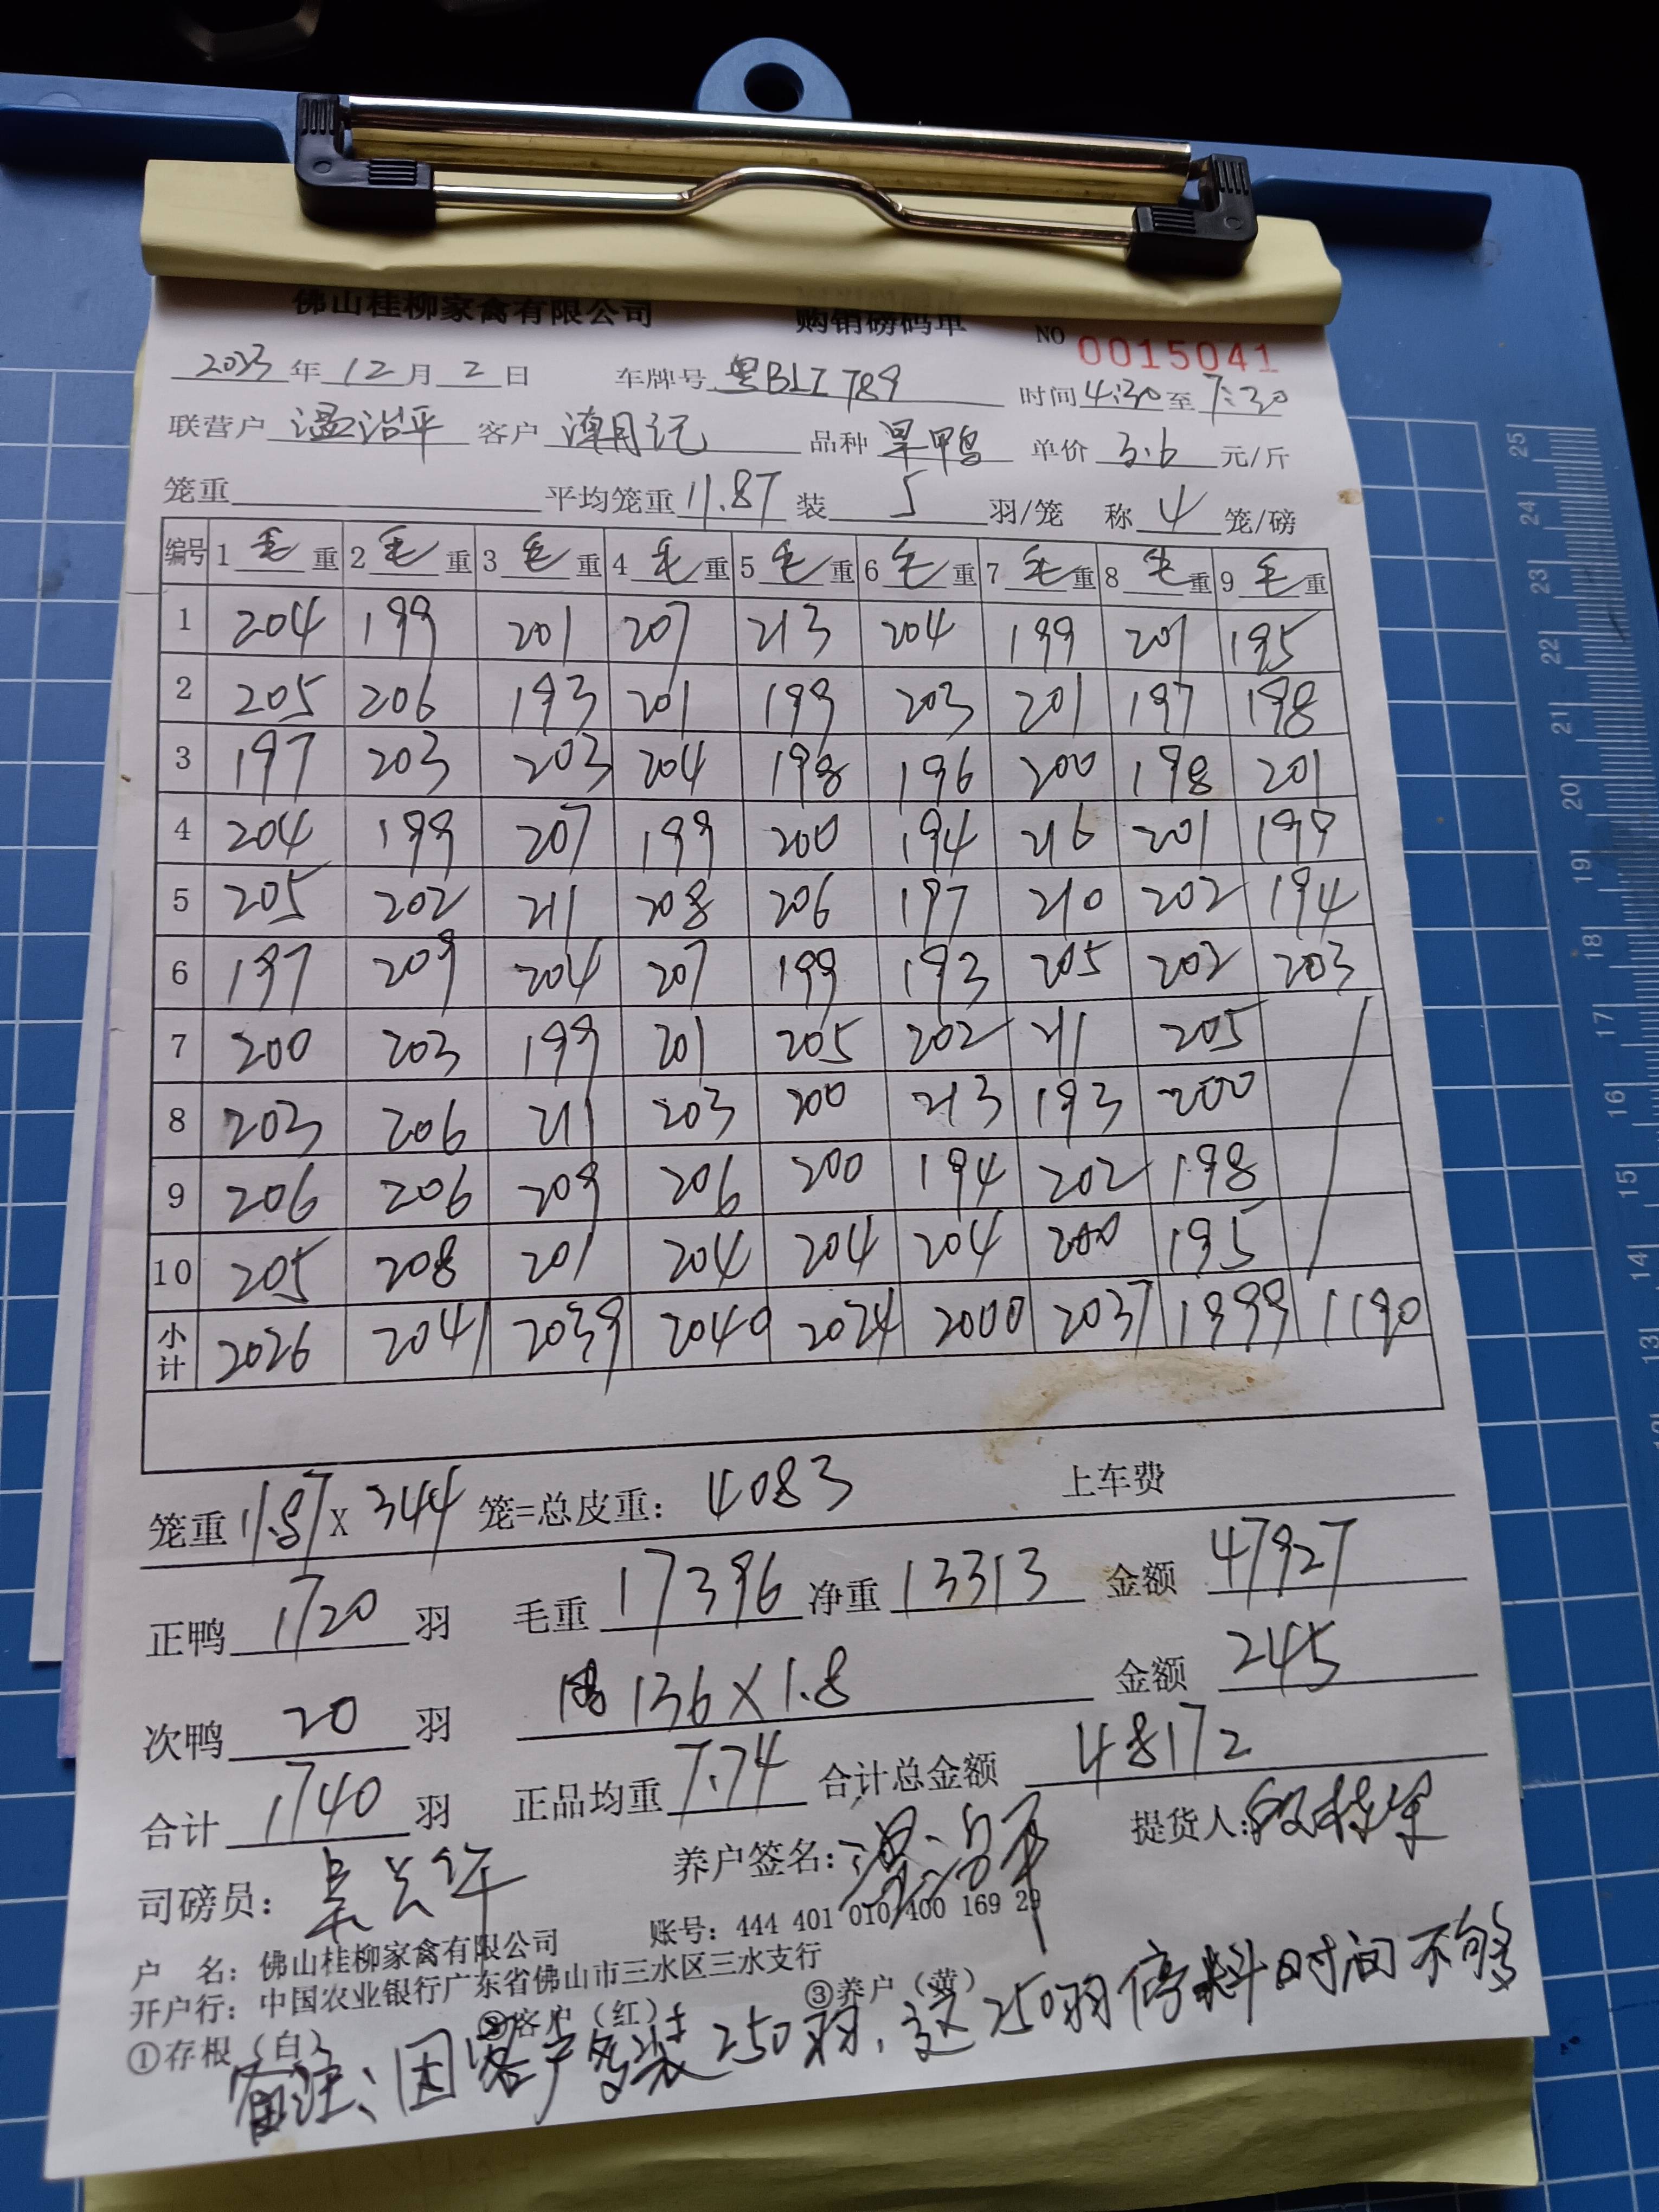 佛山桂柳家禽有限公司 购销磅码单 NO 0015041
2023年12月2日 车牌号 粤BLZ789 时间4:30至7:30
联营户 温治平 客户 潮月记 品种 旱鸭 单价 3.6 元/斤
笼重 平均笼重 11.87 装 5 羽/笼 称 4 笼/磅
编号 1毛重 2毛重 3毛重 4毛重 5毛重 6毛重 7毛重 8毛重 9毛重
1 204 199 201 207 213 204 199 201 195
2 205 206 193 201 199 203 201 197 198
3 197 203 203 204 198 196 200 198 201
4 204 199 207 199 200 194 216 201 199
5 205 202 211 208 206 197 210 202 194
6 197 209 204 207 199 193 205 202 203
7 200 203 199 201 205 202 211 205
8 203 206 211 203 200 213 193 200
9 206 206 209 206 200 194 202 198
10 205 208 201 204 204 204 200 195
小计 2026 2041 2039 2040 2024 2000 2037 1999 1190
笼重 11.87 X 344 笼=总皮重: 4083 上车费
正鸭 1720 羽 毛重 17396 净重 13313 金额 47927
次鸭 20 羽 136×1.8 金额 245
合计 1740 羽 正品均重 7.74 合计总金额 48172
司磅员: 养户签名: 温治平 提货人:
户 名: 佛山桂柳家禽有限公司 账号: 444 401 010 400 169 29
开户行: 中国农业银行广东省佛山市三水区三水支行
①存根(白) ②客户(红) ③养户(黄)
备注:因客户多装250羽,这250羽停料时间不够